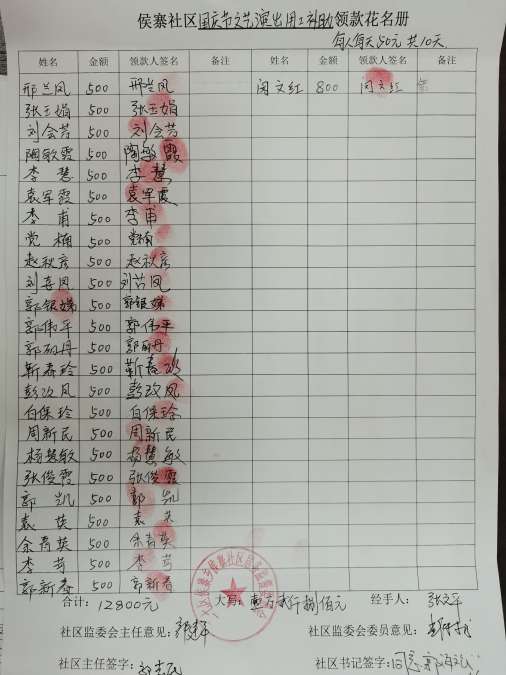 侯寨社区国庆节文艺演出用工补助领款花名册
每人每天50元 共10天
姓名 金额 领款人签名 备注 姓名 金额 领款人签名 备注
邢兰凤 500 邢兰凤 闵文红 800 闵文红
张玉娟 500 张玉娟
刘会芳 500 刘会芳
陶敏霞 500 陶敏霞
李慧 500 李慧
袁军霞 500 袁军霞
李甫 500 李甫
党楠 500 党楠
赵秋彦 500 赵秋彦
刘喜凤 500
郭银娣 500 郭银娣
郭伟平 500 郭伟平
郭丽丹 500 郭丽丹
靳春玲 500 靳春玲
彭改凤 500 彭改凤
白保玲 500 白保玲
周新民 500 周新民
杨慧敏 500 杨慧敏
张俊霞 500 张俊霞
郭凯 500 郭凯
袁英 500 袁英
余青英 500 余青英
李芬 500 李芬
郭新春 500 郭新春
合计：12800元 大写：壹万贰仟捌佰元 经手人：
社区监委会主任意见： 社区监委会委员意见：
社区主任签字： 社区书记签字：同意